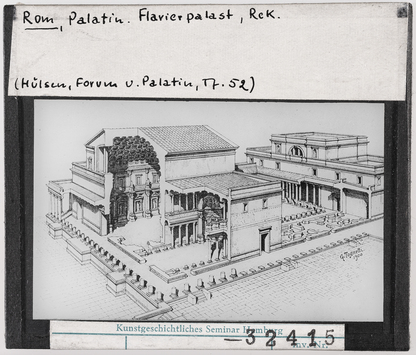 Rom, Palatin. Flavierpalast, Rek.
(Hülsen, Forum u. Palatin, Tf. 52)
Kunstgeschichtliches Seminar Hamburg
- 32415
Inv. Nr.